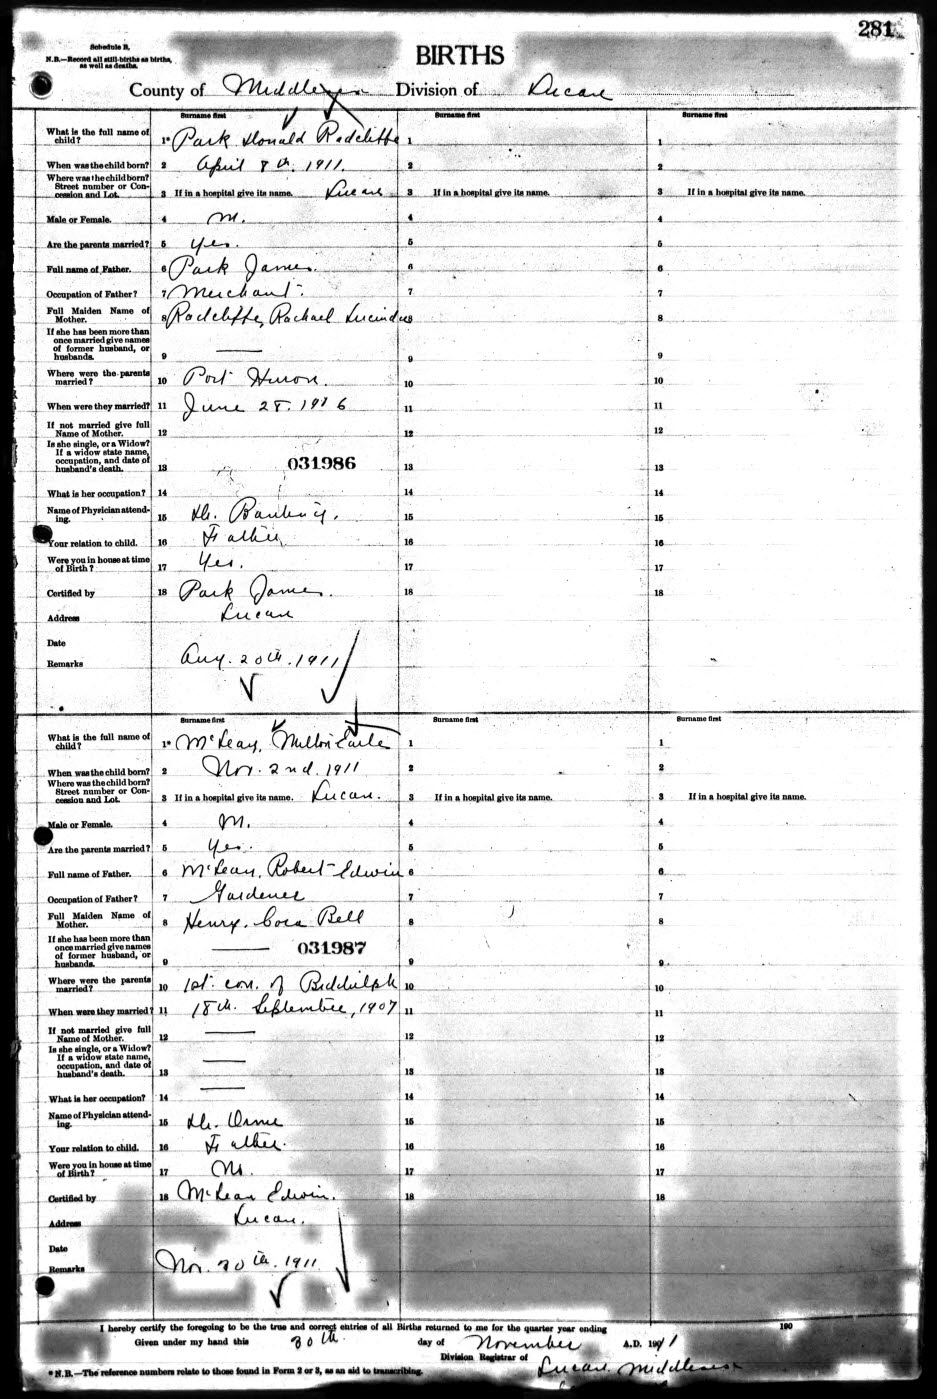 281
Schedule B.
N.B.—Record all still-births as births, as well as deaths.
BIRTHS
County of Middlesex Division of Lucan
Surname first Surname first Surname first
What is the full name of child? 1* Park Donald Radcliffe 1 1
When was the child born? 2 April 8th. 1911. 2 2
Where was the child born? Street number or Concession and Lot. 3 If in a hospital give its name. Lucan 3 If in a hospital give its name. 3 If in a hospital give its name.
Male or Female. 4 M. 4 4
Are the parents married? 5 Yes. 5 5
Full name of Father. 6 Park James. 6 6
Occupation of Father? 7 Merchant. 7 7
Full Maiden Name of Mother. 8 Radcliffe, Rachael Lucinda 8 8
If she has been more than once married give names of former husband, or husbands. 9 — 9 9
Where were the parents married? 10 Port Huron. 10 10
When were they married? 11 June 28. 1906 11 11
If not married give full Name of Mother. 12 12 12
Is she single, or a Widow? If a widow state name, occupation, and date of husband's death. 13 031986 13 13
What is her occupation? 14 14 14
Name of Physician attending. 15 Dr. Banting. 15 15
Your relation to child. 16 Father 16 16
Were you in house at time of Birth? 17 Yes. 17 17
Certified by 18 Park James. 18 18
Address Lucan
Date
Remarks Aug. 20th. 1911
Surname first Surname first Surname first
What is the full name of child? 1* McLean, Milton Earle 1 1
When was the child born? 2 Nov. 2nd. 1911 2 2
Where was the child born? Street number or Concession and Lot. 3 If in a hospital give its name. Lucan. 3 If in a hospital give its name. 3 If in a hospital give its name.
Male or Female. 4 M. 4 4
Are the parents married? 5 Yes. 5 5
Full name of Father. 6 McLean, Robert Edwin 6 6
Occupation of Father? 7 Gardener 7 7
Full Maiden Name of Mother. 8 Henry, Cora Bell 8 8
If she has been more than once married give names of former husband, or husbands. 9 — 031987 9 9
Where were the parents married? 10 1st. con. of Biddulph 10 10
When were they married? 11 18th. September, 1907 11 11
If not married give full Name of Mother. 12 — 12 12
Is she single, or a Widow? If a widow state name, occupation, and date of husband's death. 13 — 13 13
What is her occupation? 14 — 14 14
Name of Physician attending. 15 Dr. Orme 15 15
Your relation to child. 16 Father. 16 16
Were you in house at time of Birth? 17 No. 17 17
Certified by 18 McLean Edwin. 18 18
Address Lucan.
Date
Remarks Nov. 30th. 1911
I hereby certify the foregoing to be the true and correct entries of all Births returned to me for the quarter year ending 190
Given under my hand this 30th. day of November A.D. 1911
Division Registrar of Lucan Middlesex
* N.B.—The reference numbers relate to those found in Form 2 or 3, as an aid to transcribing.